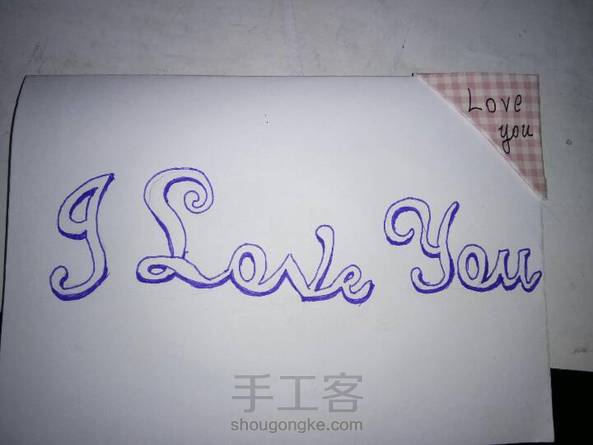 Love
you
I Love You
手工客
shougongke.com